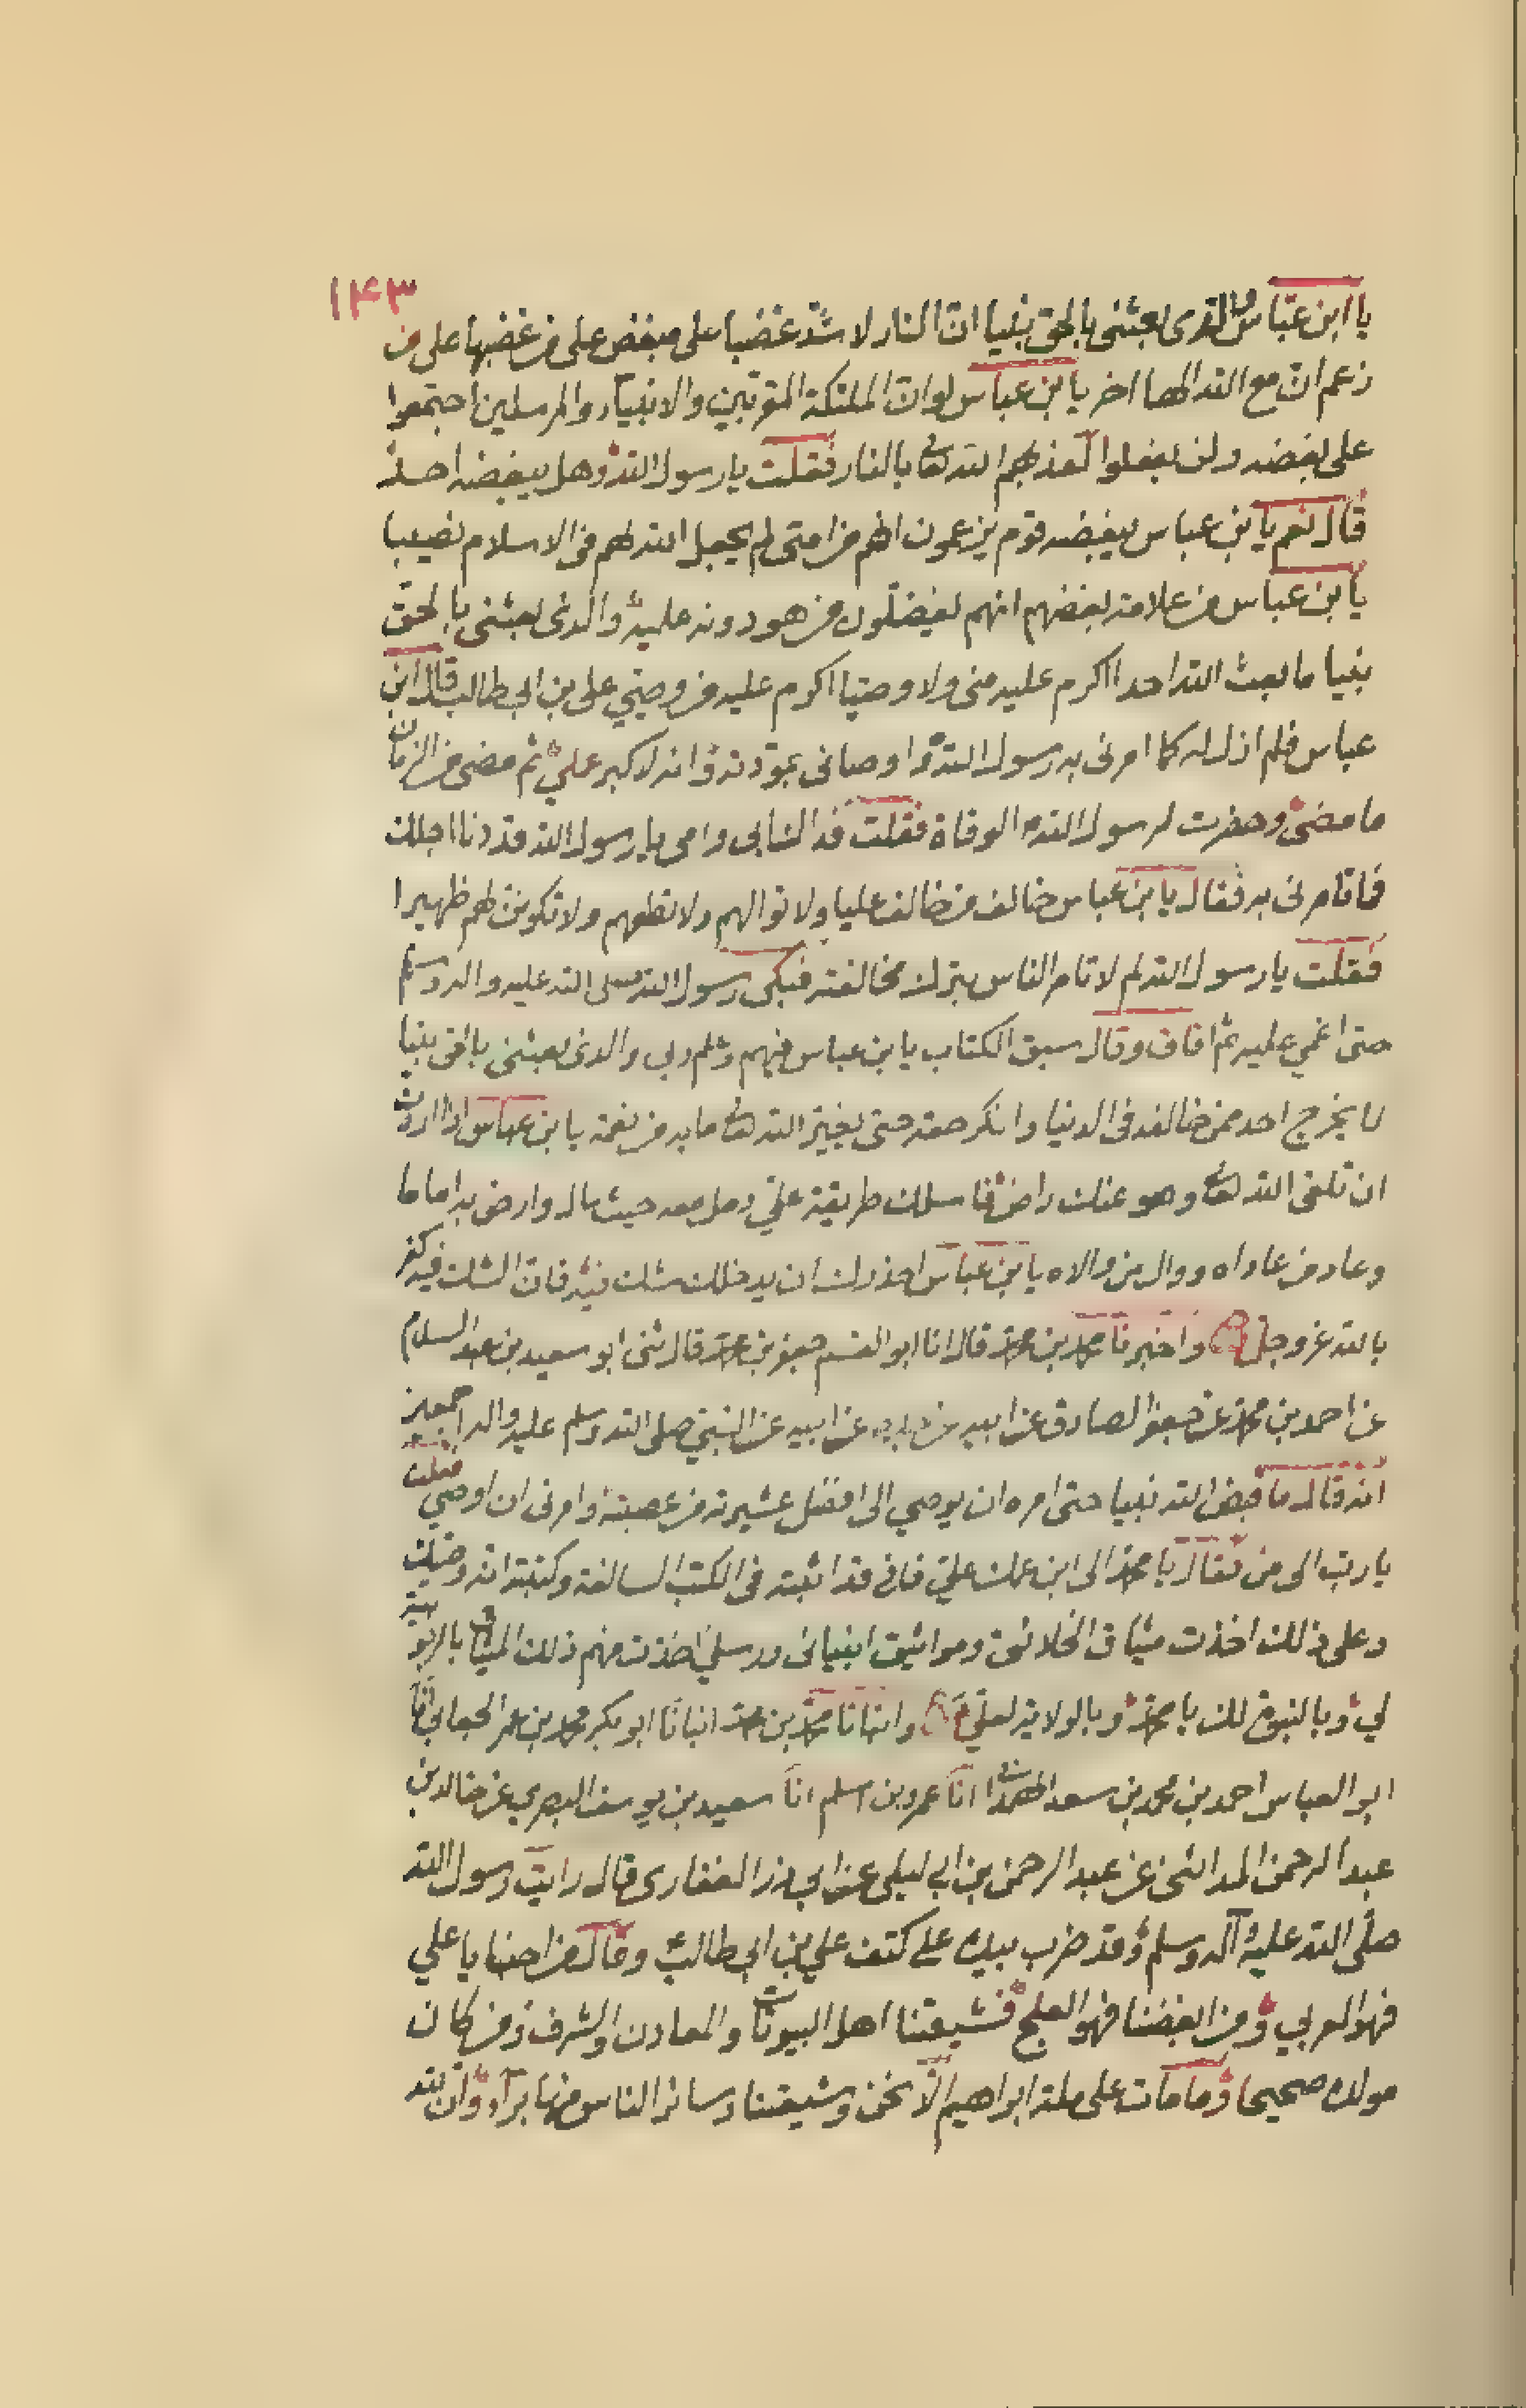 ١٤٣
يا ابن عباس والذى بعثنى بالحق نبيا ان النار لاشد غضبا على مبغض على من غضبها على من
زعم ان مع الله الها اخر يا ابن عباس لو ان الملئكة المقربين والانبياء والمرسلين اجتمعوا
على بغضه ولن يفعلوا لعذبهم الله تعالى بالنار فقلت يا رسول الله وهل يبغضه احد
قال نعم يا بن عباس يبغضه قوم يزعمون انهم من امتى لم يجعل الله لهم فى الاسلام نصيبا
يا بن عباس من علامة بغضهم انهم يفضلون من هو دونه عليه والذى بعثنى بالحق
نبيا ما بعث الله احدا اكرم عليه منى ولا وصيا اكرم عليه من وصيي على بن ابى طالب قال ابن
عباس فلم ازل له كما امرنى به رسول الله واوصانى بمودته وانه لاكبر عملي ثم مضى من الزمان
ما مضى وحضرت لرسول الله الوفاة فقلت فداك ابى وامى يا رسول الله قد دنا اجلك
فما تامرنى به فقال يا بن عباس خالف من خالف عليا ولا توالهم ولا تطعهم ولا تكونن لهم ظهيرا
فقلت يا رسول الله لم لا تامر الناس بترك مخالفته فبكى رسول الله صلى الله عليه واله وسلم
حتى اغمي عليه ثم افاق وقال سبق الكتاب يا بن عباس فيهم وعلم ربى والذى بعثنى بالحق نبيا
لا يخرج احد ممن خالفه فى الدنيا وانكر حقه حتى يغير الله تعالى ما به من نعمة يا بن عباس اذا اردت
ان تلقى الله تعالى وهو عنك راض فاسلك طريقة علي ومل معه حيث مال وارض به اماما
وعاد من عاداه ووال من والاه يا بن عباس احذرك ان يدخلك شك فيه فان الشك فيه كفر
بالله عز وجل واخبرنا محمد بن محمد قال انا ابو القسم جعفر بن محمد قال ثنى ابو سعيد بن عبد السلام
عن احمد بن محمد عن جعفر الصادق عن ابيه عن جده عن ابيه عن النبي صلى الله وسلم عليه واله اجمعين
انه قال ما قبض الله نبيا حتى امره ان يوصي الى افضل عشيرته من عصبته وامرنى ان اوصي فقلت
يا رب الى من فقال يا محمد الى ابن عمك علي فانى قد اثبته فى الكتب السالفة وكتبت انه وصيك
وعلى ذلك اخذت ميثاق الخلائق ومواثيق انبيائى ورسلي اخذت منهم ذلك الميثاق بالربوبية
لي وبالنبوة لك يا محمد وبالولاية لعلي وانبانا محمد بن محمد انبانا ابو بكر محمد بن عمر الجعابي انا
ابو العباس احمد بن محمد بن سعد الهمدانى انا عمر بن اسلم انا سعيد بن يوسف البصري عن خالد بن
عبد الرحمن المدائنى عن عبد الرحمن بن ابى ليلى عن ابى ذر الغفارى قال رايت رسول الله
صلى الله عليه آله وسلم وقد ضرب بيده على كتف علي بن ابى طالب وقال من احبنا يا علي
فهو العربي ومن ابغضنا فهو العلج فشيعتنا اهل البيوتات والمعادن والشرف ومن كان
مولده صحيحا وما مات على ملة ابراهيم الا نحن وشيعتنا وسائر الناس منها براء وان لله